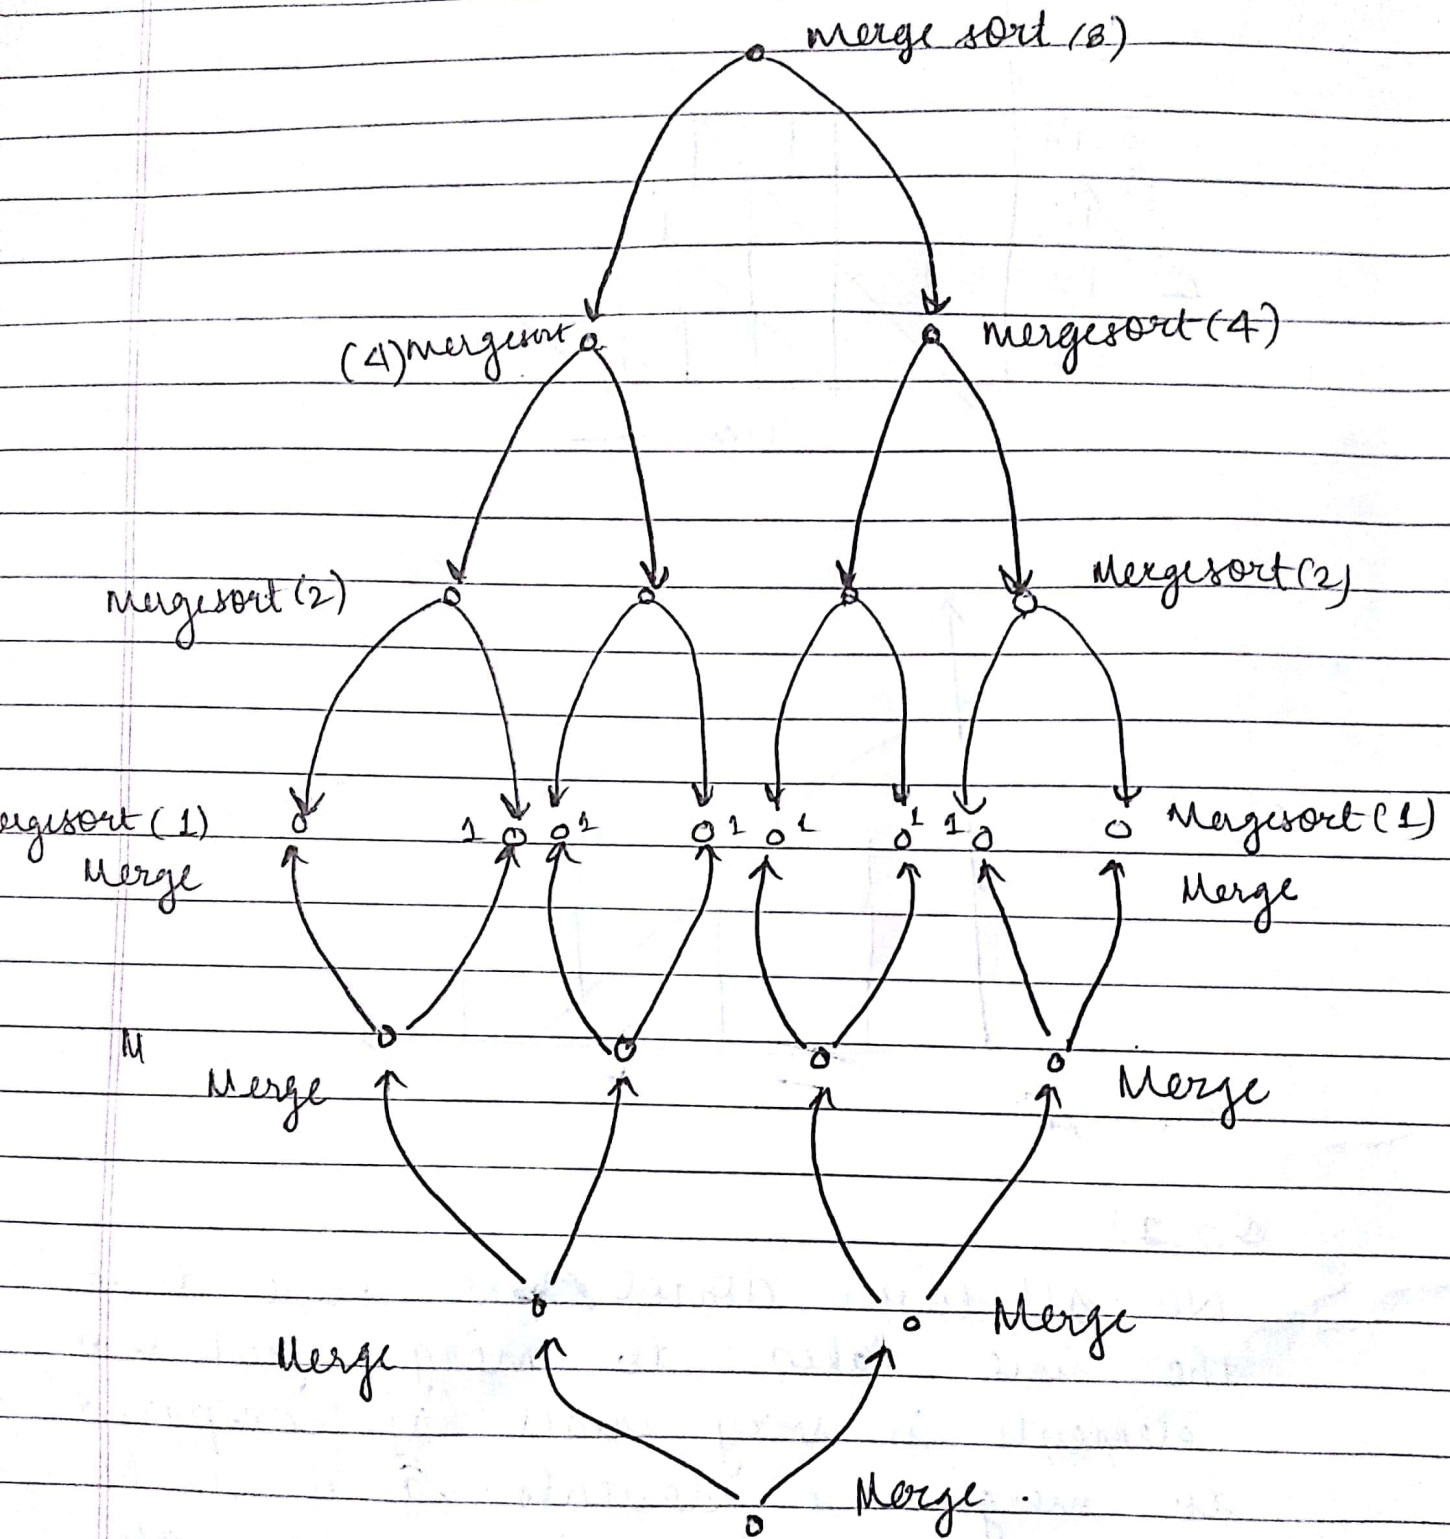 Merge sort (8)
(4) Mergesort
mergesort (4)
Mergesort (2)
Mergesort (2)
ergesort (1)
1
1
1
1
1
1
Mergesort (1)
Merge
Merge
M
Merge
Merge
Merge
Merge
Merge .